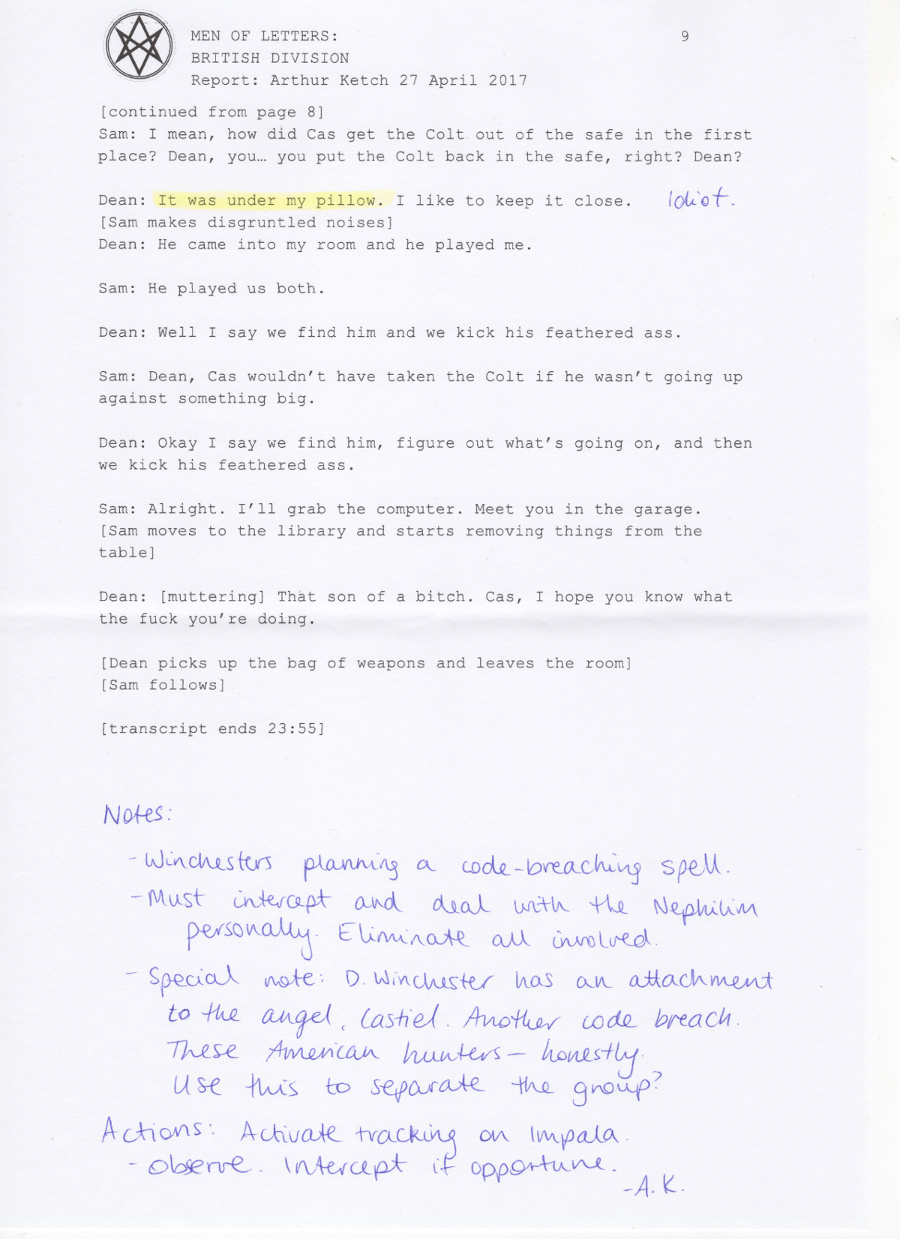 MEN OF LETTERS: 9
BRITISH DIVISION
Report: Arthur Ketch 27 April 2017
[continued from page 8]
Sam: I mean, how did Cas get the Colt out of the safe in the first
place? Dean, you… you put the Colt back in the safe, right? Dean?
Dean: It was under my pillow. I like to keep it close. Idiot.
[Sam makes disgruntled noises]
Dean: He came into my room and he played me.
Sam: He played us both.
Dean: Well I say we find him and we kick his feathered ass.
Sam: Dean, Cas wouldn't have taken the Colt if he wasn't going up
against something big.
Dean: Okay I say we find him, figure out what's going on, and then
we kick his feathered ass.
Sam: Alright. I'll grab the computer. Meet you in the garage.
[Sam moves to the library and starts removing things from the
table]
Dean: [muttering] That son of a bitch. Cas, I hope you know what
the fuck you're doing.
[Dean picks up the bag of weapons and leaves the room]
[Sam follows]
[transcript ends 23:55]
Notes:
- Winchesters planning a code-breaching spell.
- Must intercept and deal with the Nephilim
personally. Eliminate all involved.
- Special note: D. Winchester has an attachment
to the angel, Castiel. Another code breach.
These American hunters - honestly.
Use this to separate the group?
Actions: Activate tracking on Impala.
- Observe. Intercept if opportune.
-A.K.